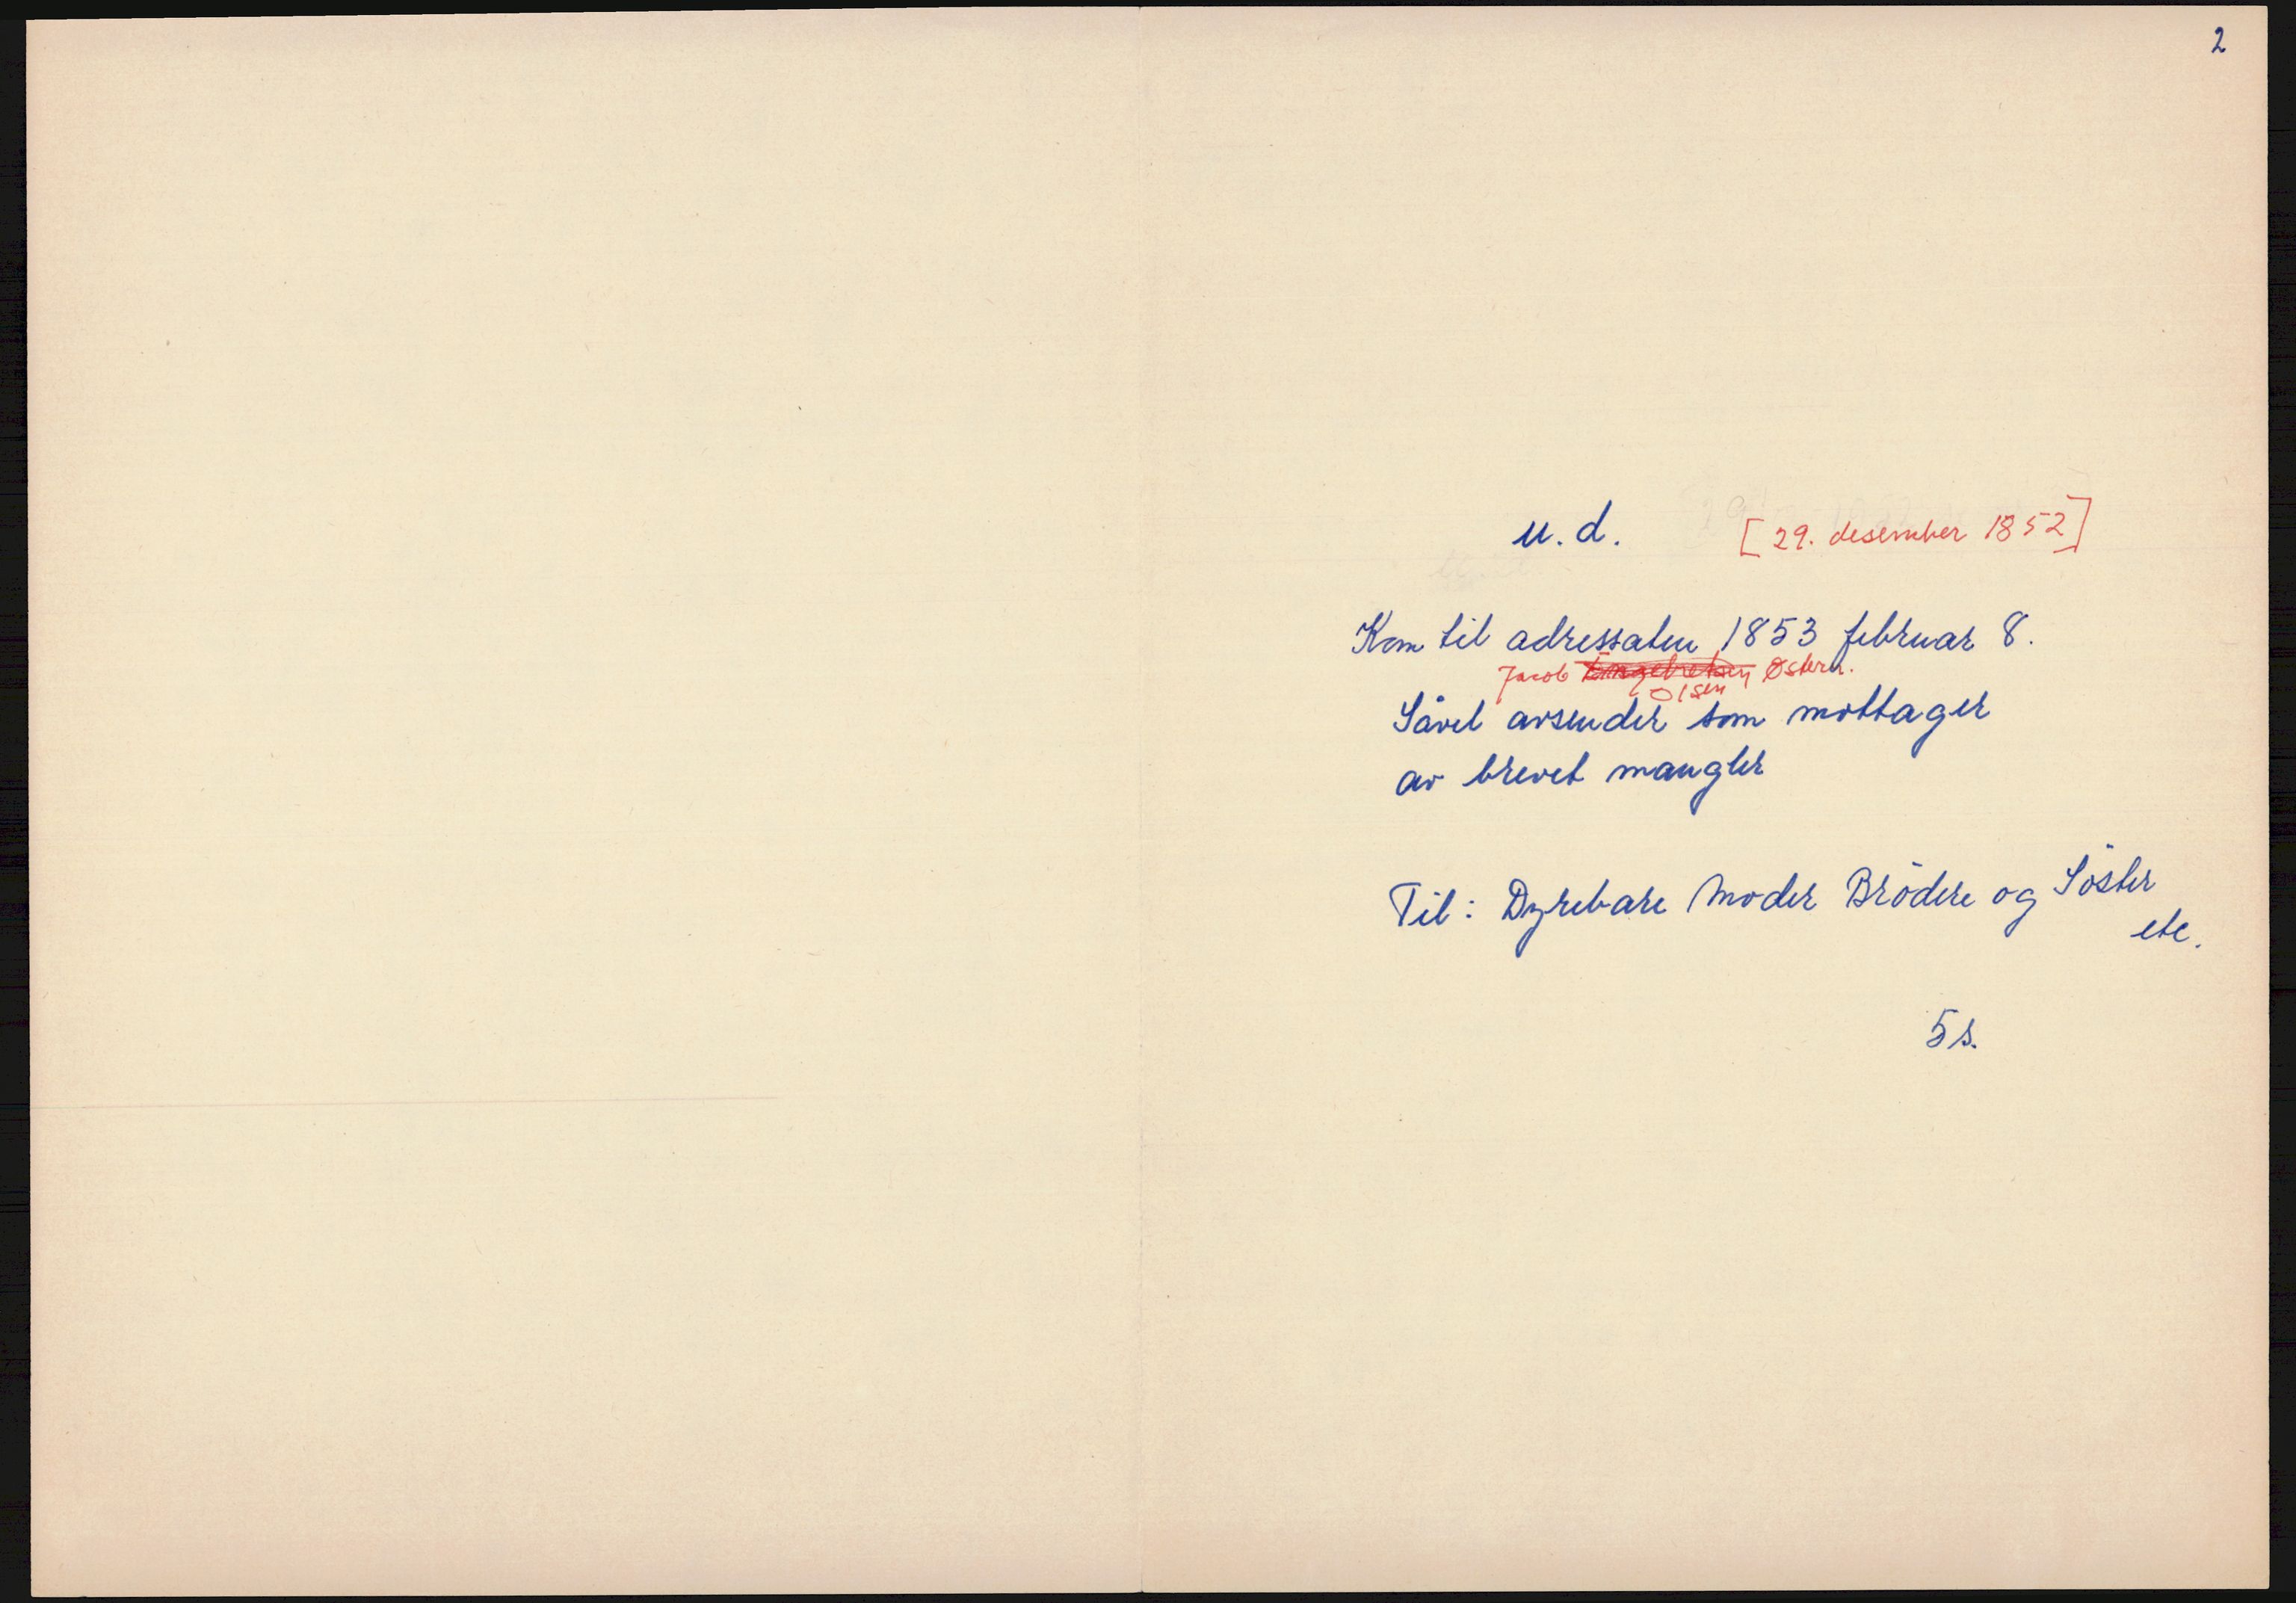 2
u. d. [29. desember 1852]
Kom til adressaten 1853 februar 8.
Jacob Engebretsen Østern.
Olsen
Såvel avsender som mottager
av brevet mangler
Til: Dyrebare Moder Brödre og Söster
etc.
5 s.